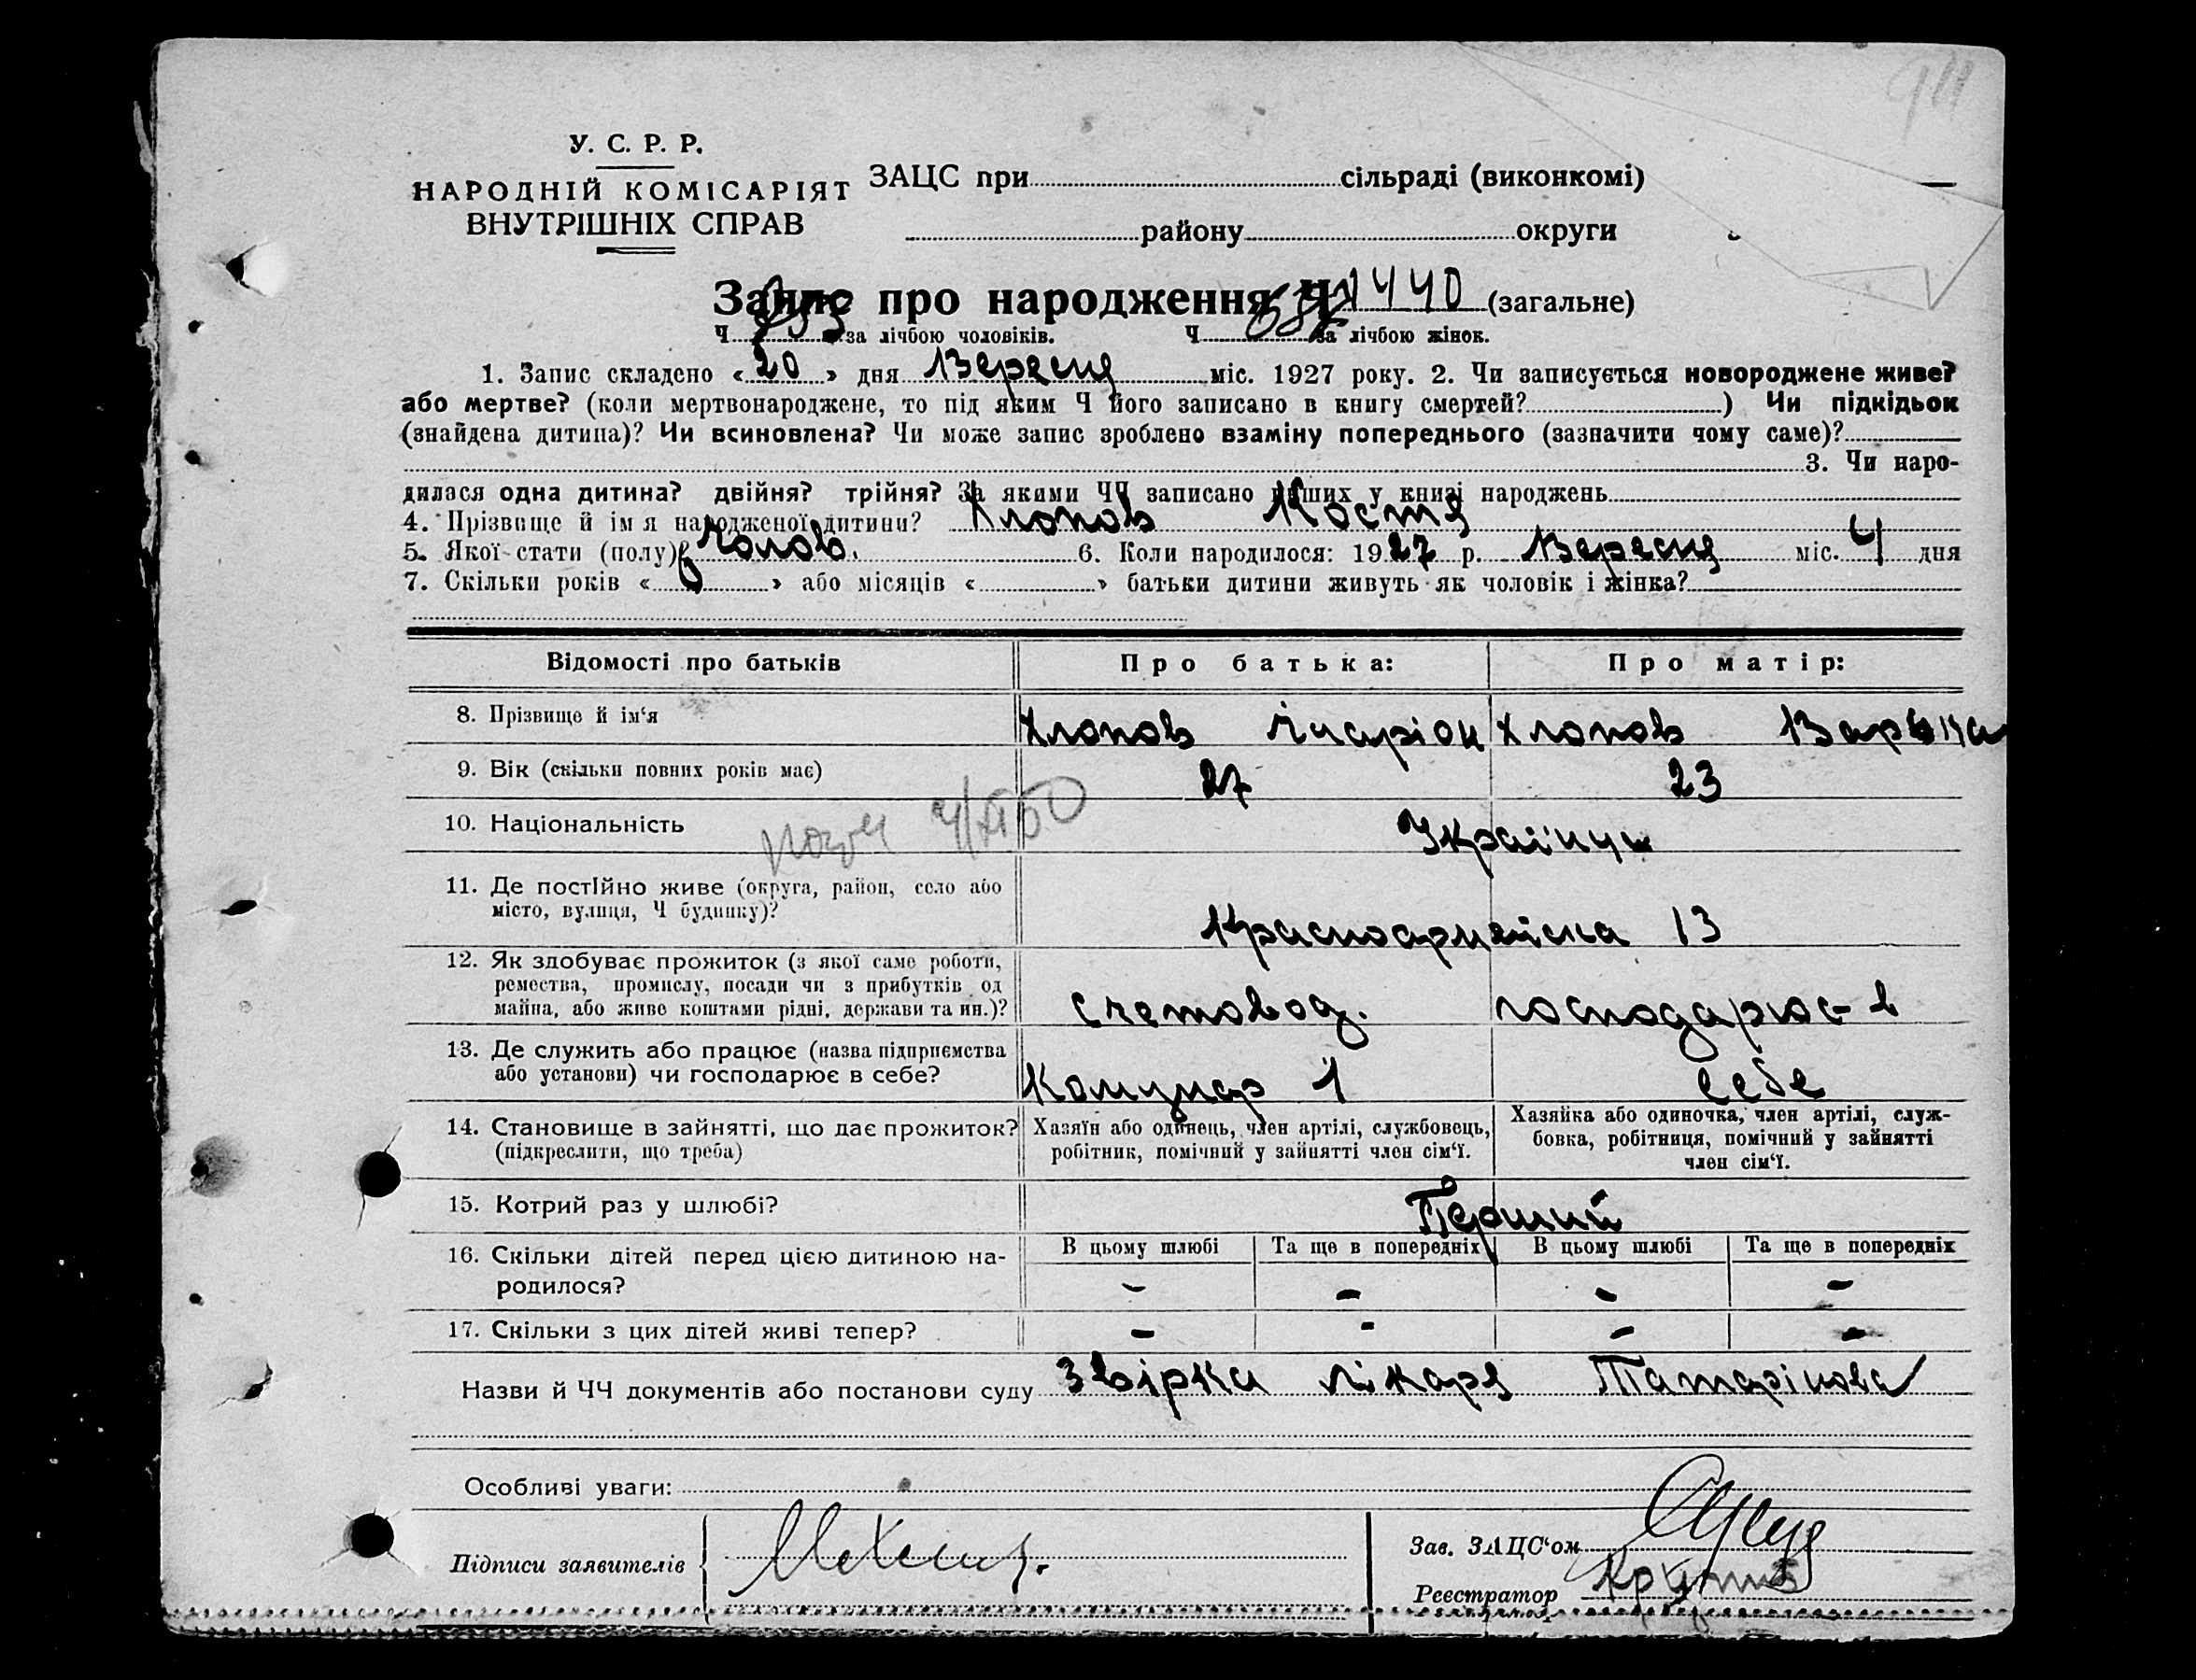 У. С. Р. Р.
НАРОДНІЙ КОМІСАРІЯТ
ВНУТРІШНІХ СПРАВ
ЗАЦС при сільраді (виконкомі)
району округи
Запис про народження Ч 1440 (загальне)
Ч 753 за лічбою чоловіків. Ч 687 за лічбою жінок.
1. Запис складено «20» дня Вересня міс. 1927 року. 2. Чи записується новороджене живе?
або мертве? (коли мертвонароджене, то під яким Ч його записано в книгу смертей? ) Чи підкідьок
(знайдена дитина)? Чи всиновлена? Чи може запис зроблено взаміну попереднього (зазначити чому саме)?
3. Чи наро-
дилася одна дитина? двійня? трійня? За якими ЧЧ записано інших у книзі народжень
4. Прізвище й ім я народженої дитини? Хлопов Костя
5. Якої стати (полу)? Чолов. 6. Коли народилося: 1927 р. Вересня міс. 4 дня
7. Скільки років « » або місяців « » батьки дитини живуть як чоловік і жінка?
Відомості про батьків Про батька: Про матір:
8. Прізвище й ім‘я Хлопов Іларіон Хлопов Варька
9. Вік (скільки повних років має) 27 23
10. Національність Українці
11. Де постІйно живе (округа, район, село або
місто, вулиця, Ч будинку)? Красноармейска 13
12. Як здобуває прожиток (з якої саме роботи,
ремества, промислу, посади чи з прибутків од
майна, або живе коштами рідні, держави та ин.)? счетовод. господарює в
13. Де служить або працює (назва підприємства
або установи) чи господарює в себе? Комунар 1 себе
14. Становище в зайнятті, що дає прожиток?
(підкреслити, що треба)
Хазяїн або одинець, член артілі, службовець,
робітник, помічний у зайнятті член сім‘ї.
Хазяйка або одиночка, член артілі, служ-
бовка, робітниця, помічний у зайнятті
член сім‘ї.
15. Котрий раз у шлюбі? Перший
16. Скільки дітей перед цією дитиною на-
родилося?
В цьому шлюбі Та ще в попередніх В цьому шлюбі Та ще в попередніх
- - - -
17. Скільки з цих дітей живі тепер? - - - -
Назви й ЧЧ документів або постанови суду Звірка лікаря Татарінова
Особливі уваги:
Підписи заявителів
Зав. ЗАЦС‘ом
Реєстратор